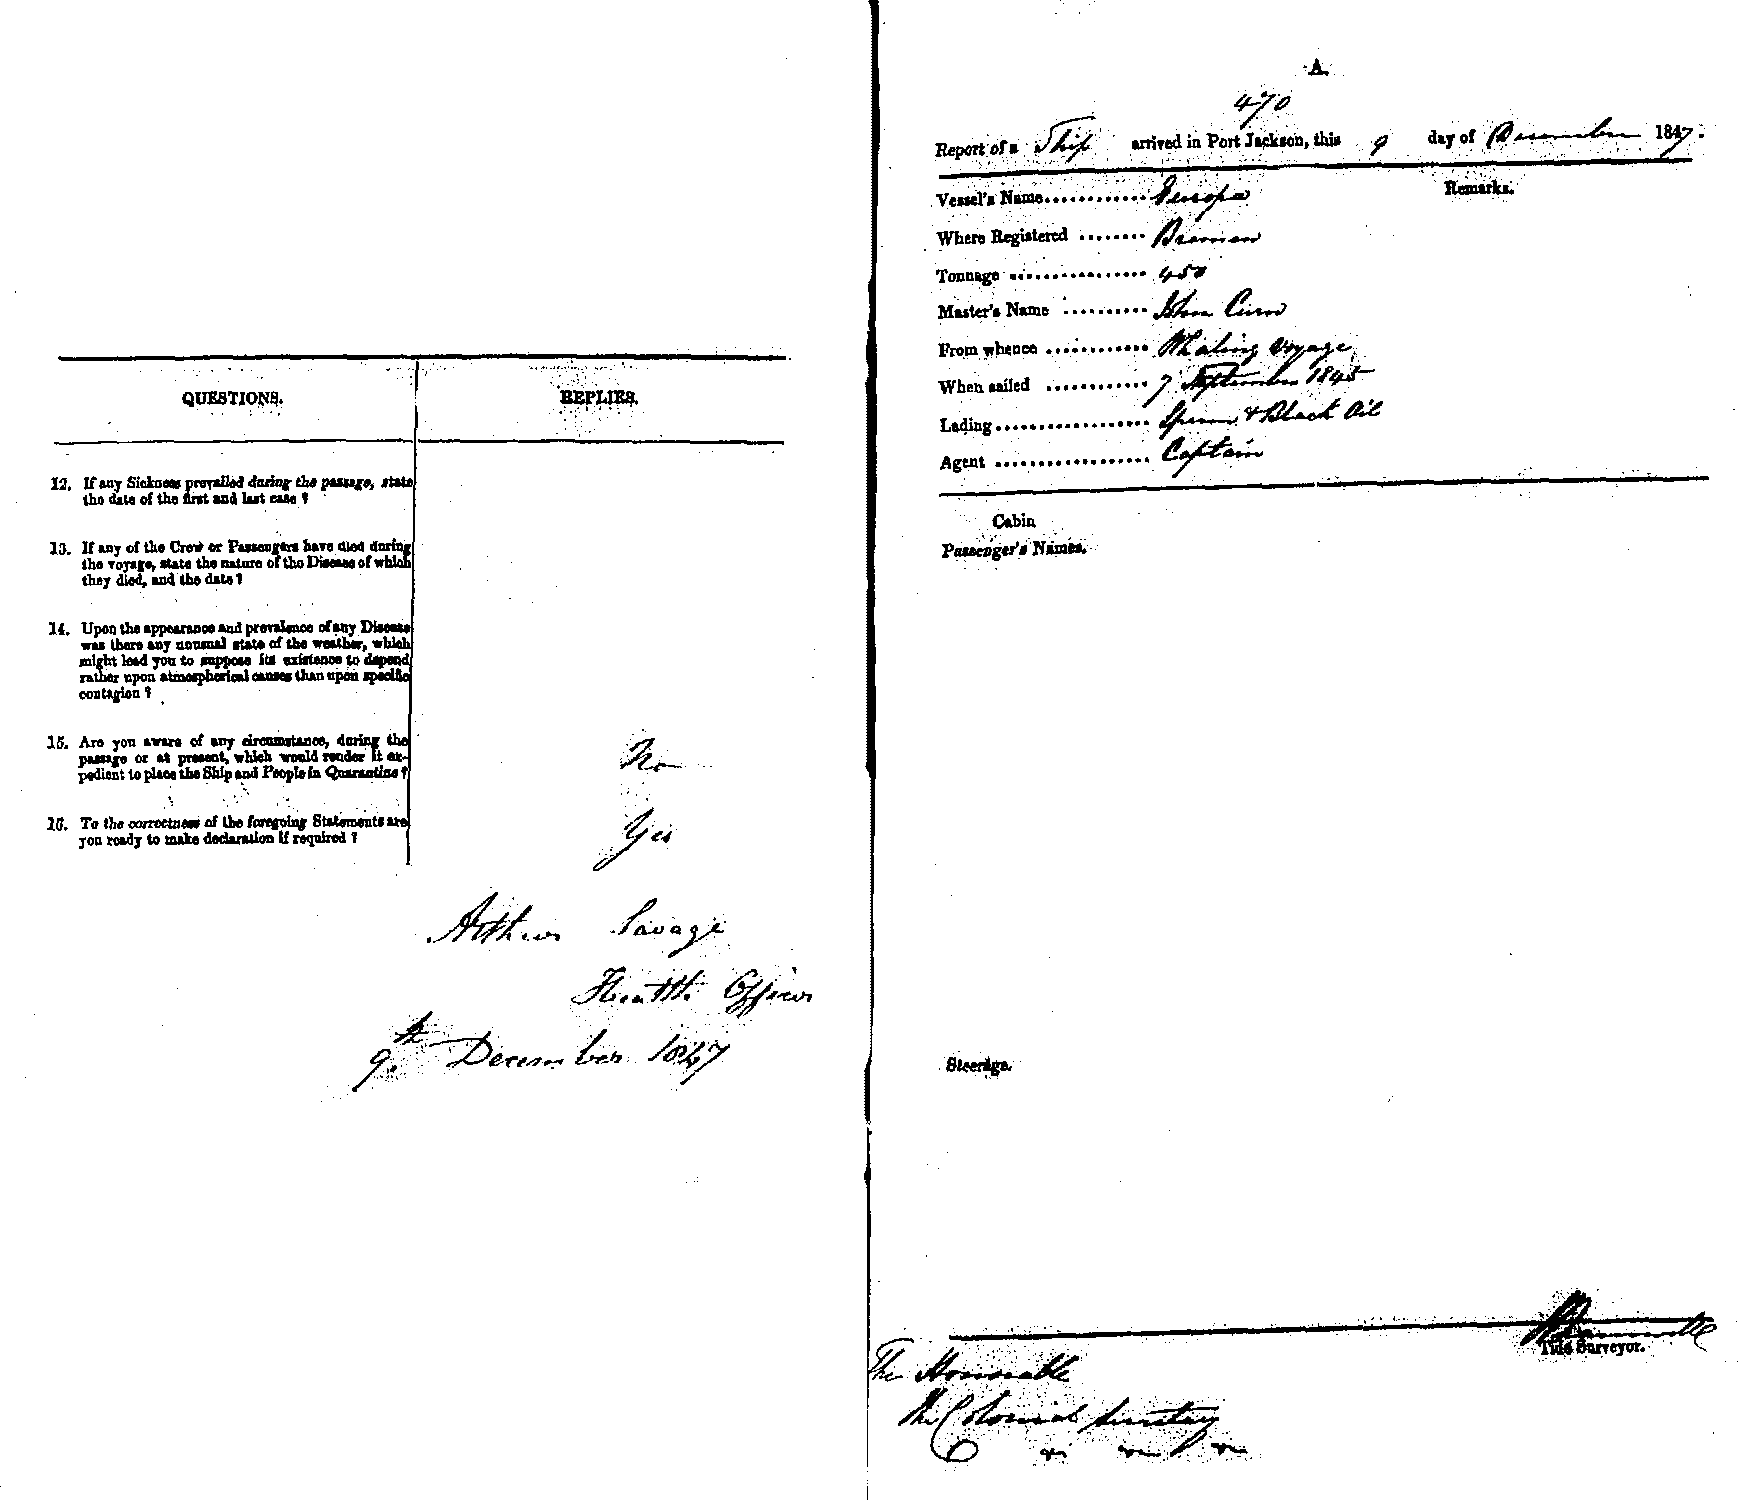 QUESTIONS.
REPLIES.
12. If any Sickness prevailed during the passage, state
the date of the first and last case ?
13. If any of the Crew or Passengers have died during
the voyage, state the nature of the Disease of which
they died, and the date ?
14. Upon the appearance and prevalence of any Disease
was there any unusual state of the weather, which
might lead you to suppose its existence to depend
rather upon atmospherical causes than upon specific
contagion ?
15. Are you aware of any circumstance, during the
passage or at present, which would render it ex-
pedient to place the Ship and People in Quarantine ?
No
16. To the correctness of the foregoing Statements are
you ready to make declaration if required ?
Yes
Arthur Savage
Health Officer
9th December 1847
A.
470
Report of a Ship arrived in Port Jackson, this 9 day of December 1847.
Remarks.
Vessel's Name............ Europa
Where Registered ........ Bremen
Tonnage ................ 450
Master's Name .......... John
From whence ............ Whaling Voyage
When sailed ............ 7 September 1845
Lading.................. Sperm & Black Oil
Agent .................. Captain
Cabin
Passenger's Names.
Steerage.
Tide Surveyor.
The Honorable
The Colonial Secretary